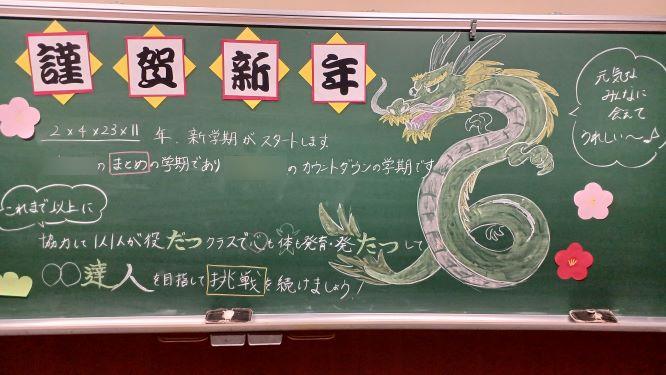 謹賀新年
元気な
みんなに
会えて
うれしい〜♪
2×4×23×11 年、新学期がスタートします
のまとめの学期であり のカウントダウンの学期です
これまで以上に
協力して1人1人が役だつクラスで心も体も発育・発たつして
〇〇達人を目指して挑戦を続けましょう!